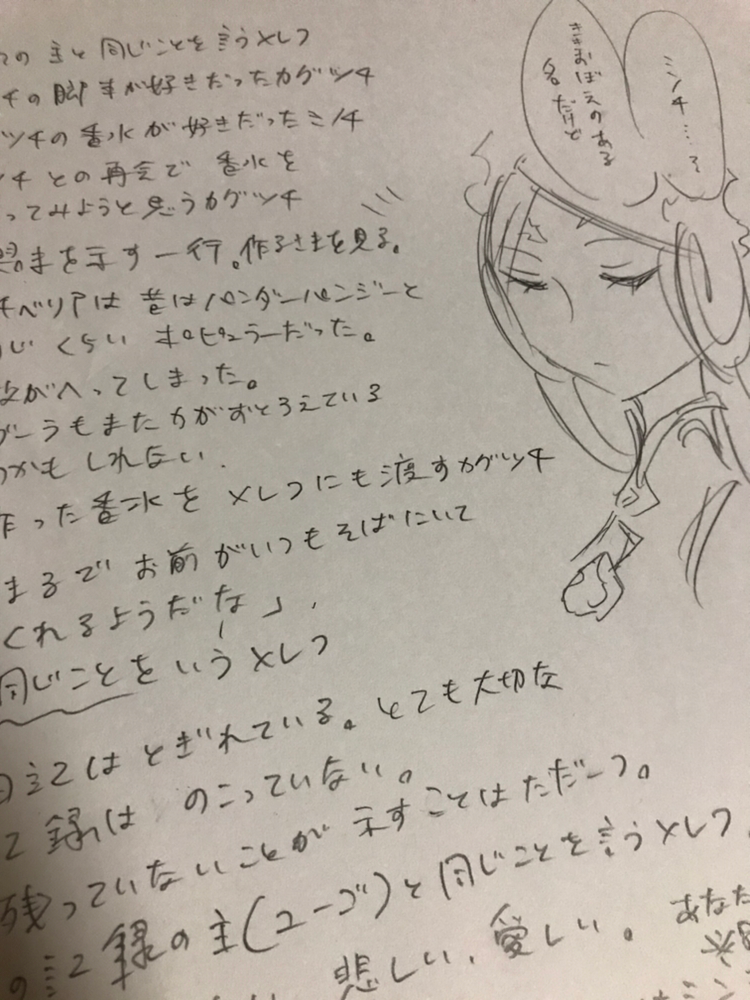 の主と同じことを言うメレフ
チの脚本が好きだったカグツチ
ツチの香水が好きだったミノチ
チとの再会で香水を
ってみようと思うカグツチ
を示す一行。作るさまを見る。
ベリアは昔はパンダーパンジーと
じくらいポピュラーだった。
がへってしまった。
グーラもまた力がおとろえている
かもしれない.
作った香水をメレフにも渡すカグツチ
まるでお前がいつもそばにいて
くれるようだな」.
同じことをいうメレフ
日記はとぎれている。とても大切な
記録はのこっていない。
残っていないことが示すことはただ一つ。
記録の主(ユーゴ)と同じことを言うメレフ。
悲しい、愛しい。
あなた
ミノチ…?
ききおぼえのある
名だけど